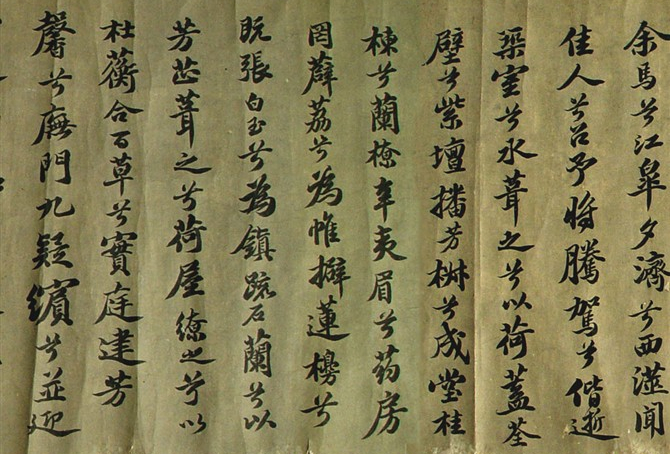 余馬兮江臯夕濟兮西澨聞
佳人兮召予將騰駕兮偕逝
築室兮水葺之兮以荷蓋荃
壁兮紫壇播芳椒兮成堂桂
棟兮蘭橑辛夷眉兮葯房
罔薜荔兮為帷擗蓮櫋兮
既張白玉兮為鎮䟽石蘭兮以
芳芷葺之兮荷屋繚之兮以
杜蘅合百草兮實庭建芳
馨兮廡門九疑繽兮並迎